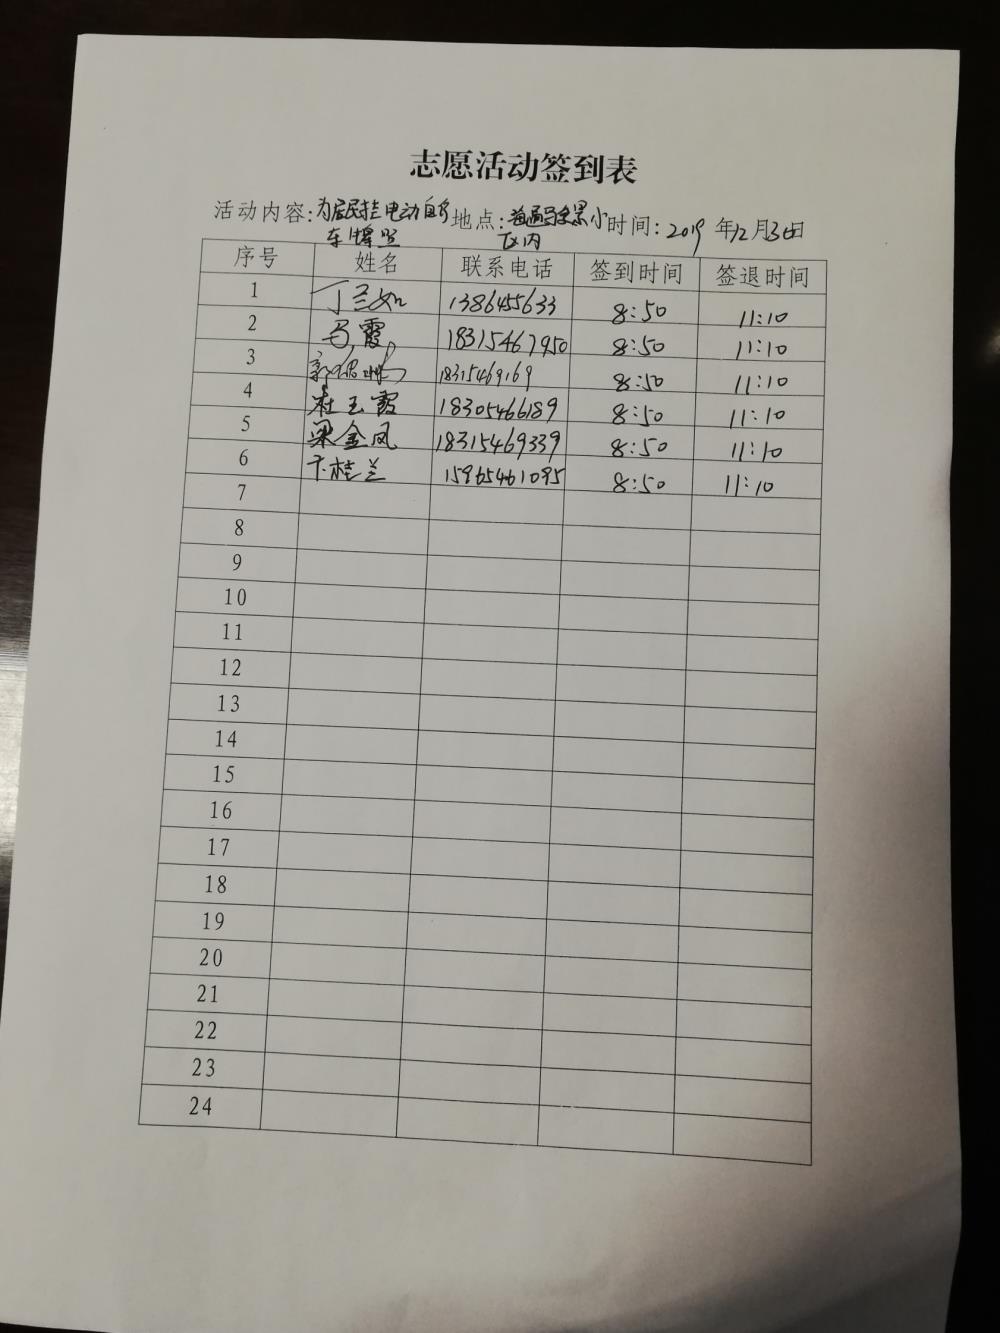 志愿活动签到表
活动内容:为居民挂电动自行车牌照 地点:小区内 时间:2019年12月3日
序号 姓名 联系电话 签到时间 签退时间
1 丁兰如 1386455633 8:50 11:10
2 马霞 18315467950 8:50 11:10
3 郭 18315469169 8:50 11:10
4 杜玉霞 18305466189 8:50 11:10
5 梁金凤 18315469339 8:50 11:10
6 卞桂兰 15965461095 8:50 11:10
7
8
9
10
11
12
13
14
15
16
17
18
19
20
21
22
23
24